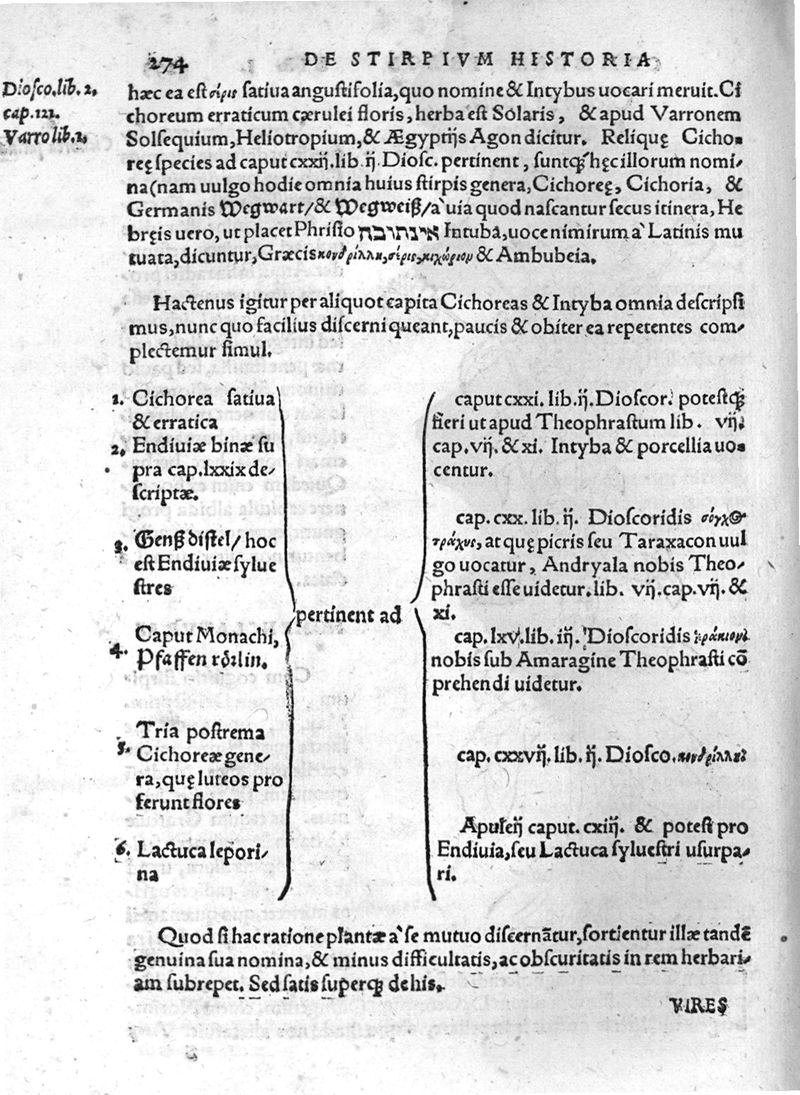 274 DE STIRPIVM HISTORIA
Diosco. lib. 2.
cap. 121.
Varro lib. 1.
hæc ea est σέρις satiua angustifolia, quo nomine & Intybus uocari meruit. Ci
choreum erraticum cærulei floris, herba est Solaris, & apud Varronem
Solsequium, Heliotropium, & Ægyptijs Agon dicitur. Reliquę Cicho-
reę species ad caput cxxij. lib. ij. Diosc. pertinent, suntq́ hęc illorum nomi-
na (nam uulgo hodie omnia huius stirpis genera, Cichoreę, Cichoria, &
Germanis Wegwart/ & Wegweiß/ à uia quod nascantur secus itinera, He
bręis uero, ut placet Phrisio אינתובה Intuba, uoce nimirum à Latinis mu
tuata, dicuntur, Græcis κονδρίλλη, σέρις, κιχώριον & Ambubeia.
Hactenus igitur per aliquot capita Cichoreas & Intyba omnia descripsi
mus, nunc quo facilius discerni queant, paucis & obiter ea repetentes com-
plectemur simul.
1. Cichorea satiua
& erratica
2. Endiuiæ binæ su
pra cap. lxxix de-
scriptæ.
3. Genßdistel/ hoc
est Endiuiæ sylue
stres
Caput Monachi,
4. Pfaffen rözlin.
Tria postrema
5. Cichoreæ gene-
ra, quę luteos pro
ferunt flores
6. Lactuca lepori-
na
pertinent ad
caput cxxi. lib. ij. Dioscor. potestq́
fieri ut apud Theophrastum lib. vij.
cap. vij. & xi. Intyba & porcellia uo-
centur.
cap. cxx. lib. ij. Dioscoridis σόγχος
τράχυς, at quę picris seu Taraxacon uul
go uocatur, Andryala nobis Theo-
phrasti esse uidetur. lib. vij. cap. vij. &
xi.
cap. lxv. lib. iij. Dioscoridis ἱεράκιον
nobis sub Amaragine Theophrasti cõ
prehendi uidetur.
cap. cxxvij. lib. ij. Diosco. κονδρίλλαι
Apuleij caput. cxiij. & potest pro
Endiuia, seu Lactuca syluestri usurpa-
ri.
Quod si hac ratione plantæ à se mutuo discernãtur, sortientur illæ tandẽ
genuina sua nomina, & minus difficultatis, ac obscuritatis in rem herbari-
am subrepet. Sed satis superq́ de his.
VIRES